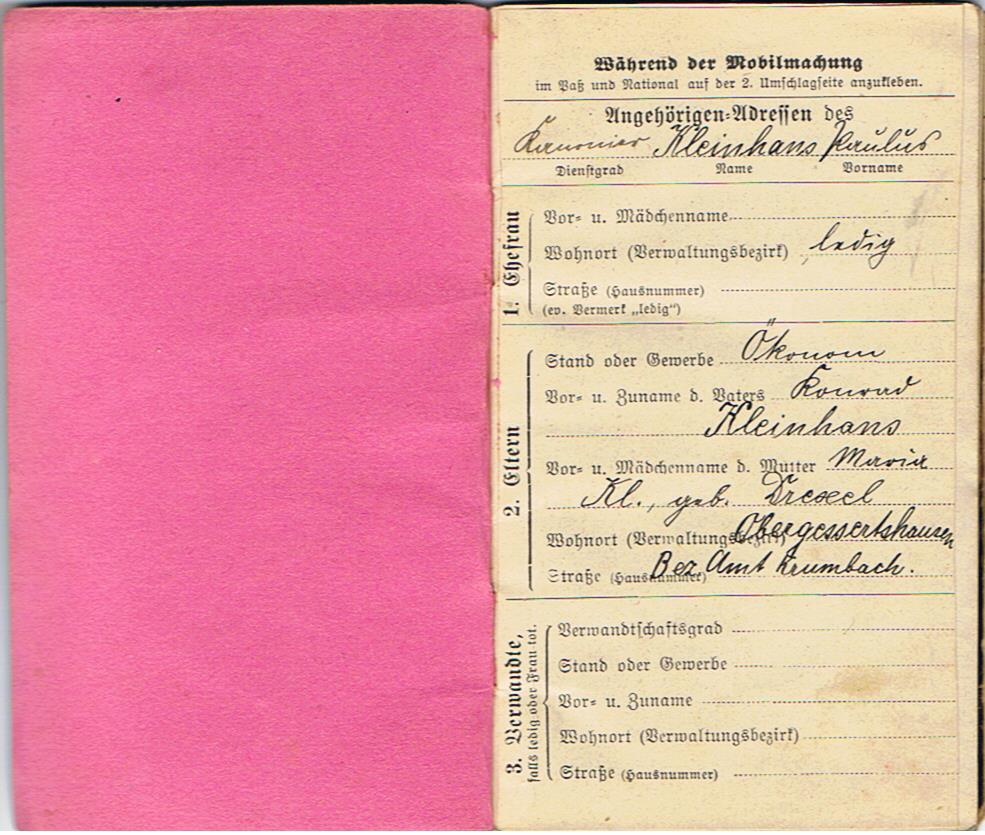 Während der Mobilmachung
im Paß und National auf der 2. Umschlagseite anzukleben.
Angehörigen-Adressen des
Kanonier Kleinhans Paulus
Dienstgrad Name Vorname
1. Ehefrau
Vor- u. Mädchenname
Wohnort (Verwaltungsbezirk) ledig
Straße (Hausnummer)
(ev. Vermerk „ledig“)
2. Eltern
Stand oder Gewerbe Ökonom
Vor- u. Zuname d. Vaters Konrad
Kleinhans
Vor- u. Mädchenname d. Mutter Maria
Kl., geb. Drexel
Wohnort (Verwaltungsbezirk) Obergessertshausen
Straße (Hausnummer) Bez. Amt Krumbach.
3. Verwandte,
falls ledig oder Frau tot.
Verwandtschaftsgrad
Stand oder Gewerbe
Vor- u. Zuname
Wohnort (Verwaltungsbezirk)
Straße (Hausnummer)